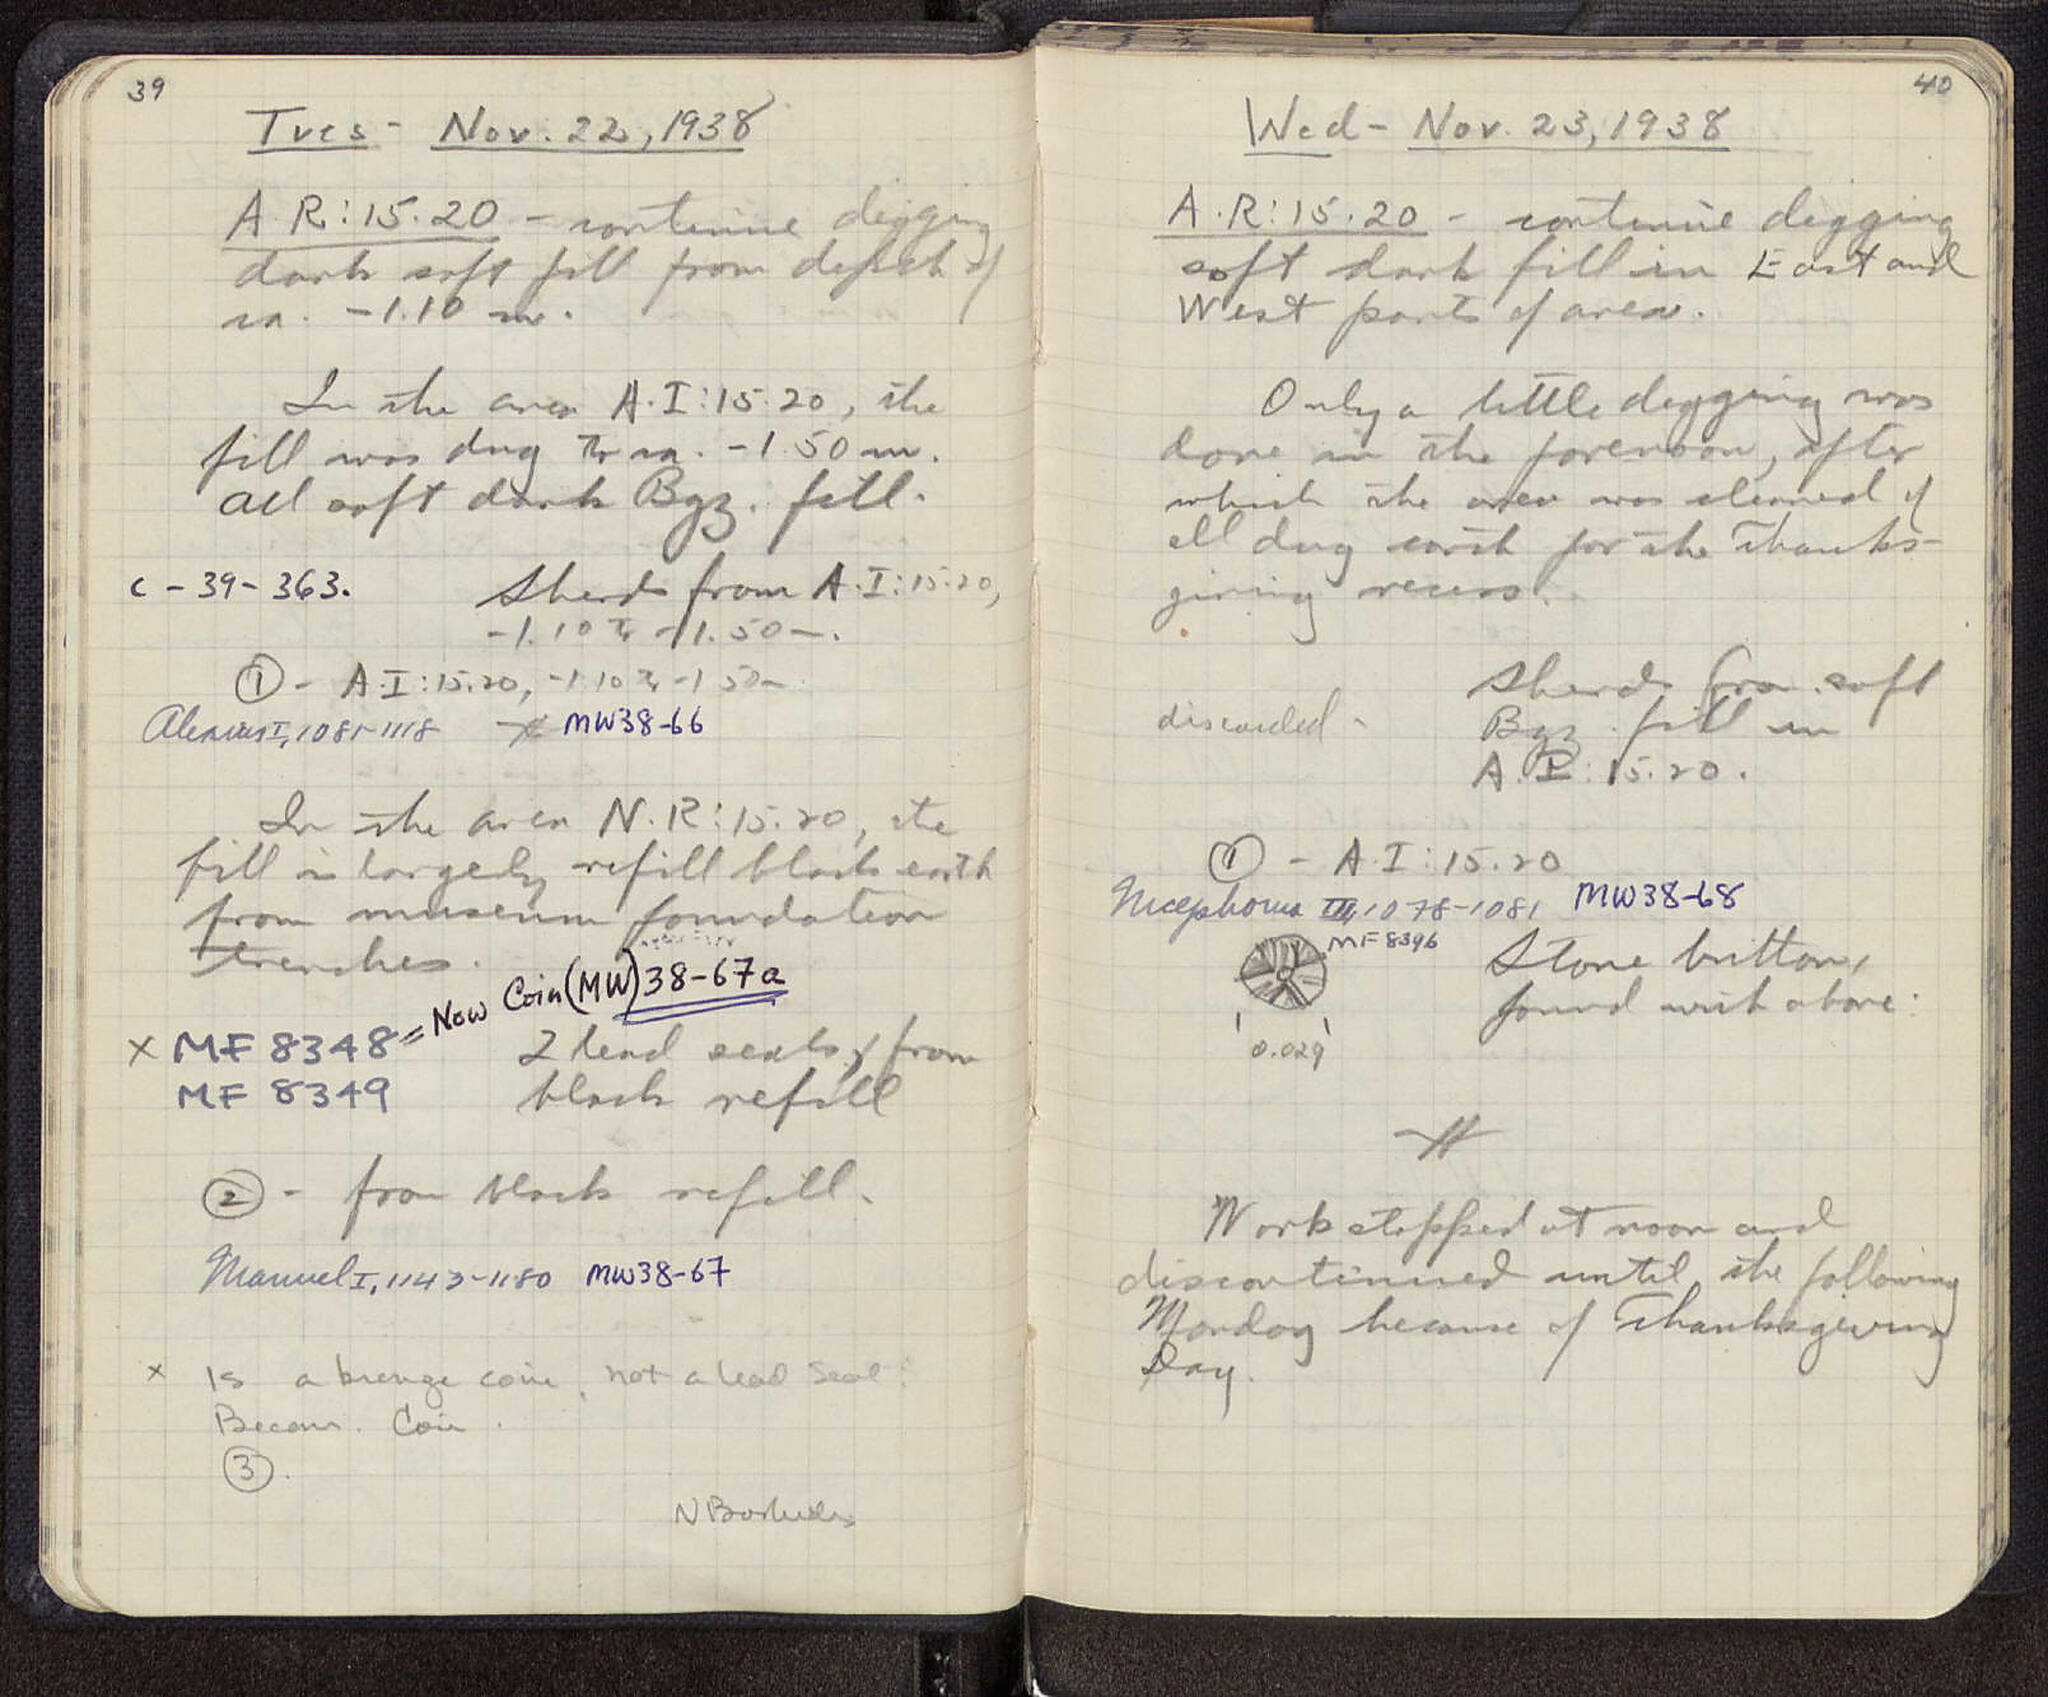 39
Tues - Nov. 22, 1938
A.R:15.20 - continue digging
dark soft fill from depth of
ca. -1.10 m.
In the area A.I:15.20, the
fill was dug to ca. -1.50 m.
All soft dark Byz. fill.
C-39-363. Sherds from A.I:15.20,
-1.10 to -1.50 m.
① - A.I:15.20, -1.10 to -1.50 m.
Alexius I, 1081-1118 MW38-66
In the area N.R:15.20, the
fill is largely refill black earth
from museum foundation
trenches.
= Now Coin (MW) 38-67a
x MF 8348 2 lead seals, from
MF 8349 black refill
② - from black refill.
Manuel I, 1143-1180 MW38-67
x Is a bronze coin, not a lead seal.
Becom. Coin.
③.
40
Wed - Nov. 23, 1938
A.R:15.20 - continue digging
soft dark fill in East and
West parts of area.
Only a little digging was
done in the forenoon, after
which the area was cleaned of
all dug earth for the Thanks-
giving recess.
Sherds from soft
discarded - Byz. fill in
A.I:15.20.
① - A.I:15.20
Nicephorus III, 1078-1081 MW38-68
MF 8396
Stone button,
found with above:
0.029
Work stopped at noon and
discontinued until the following
Monday because of Thanksgiving
Day.